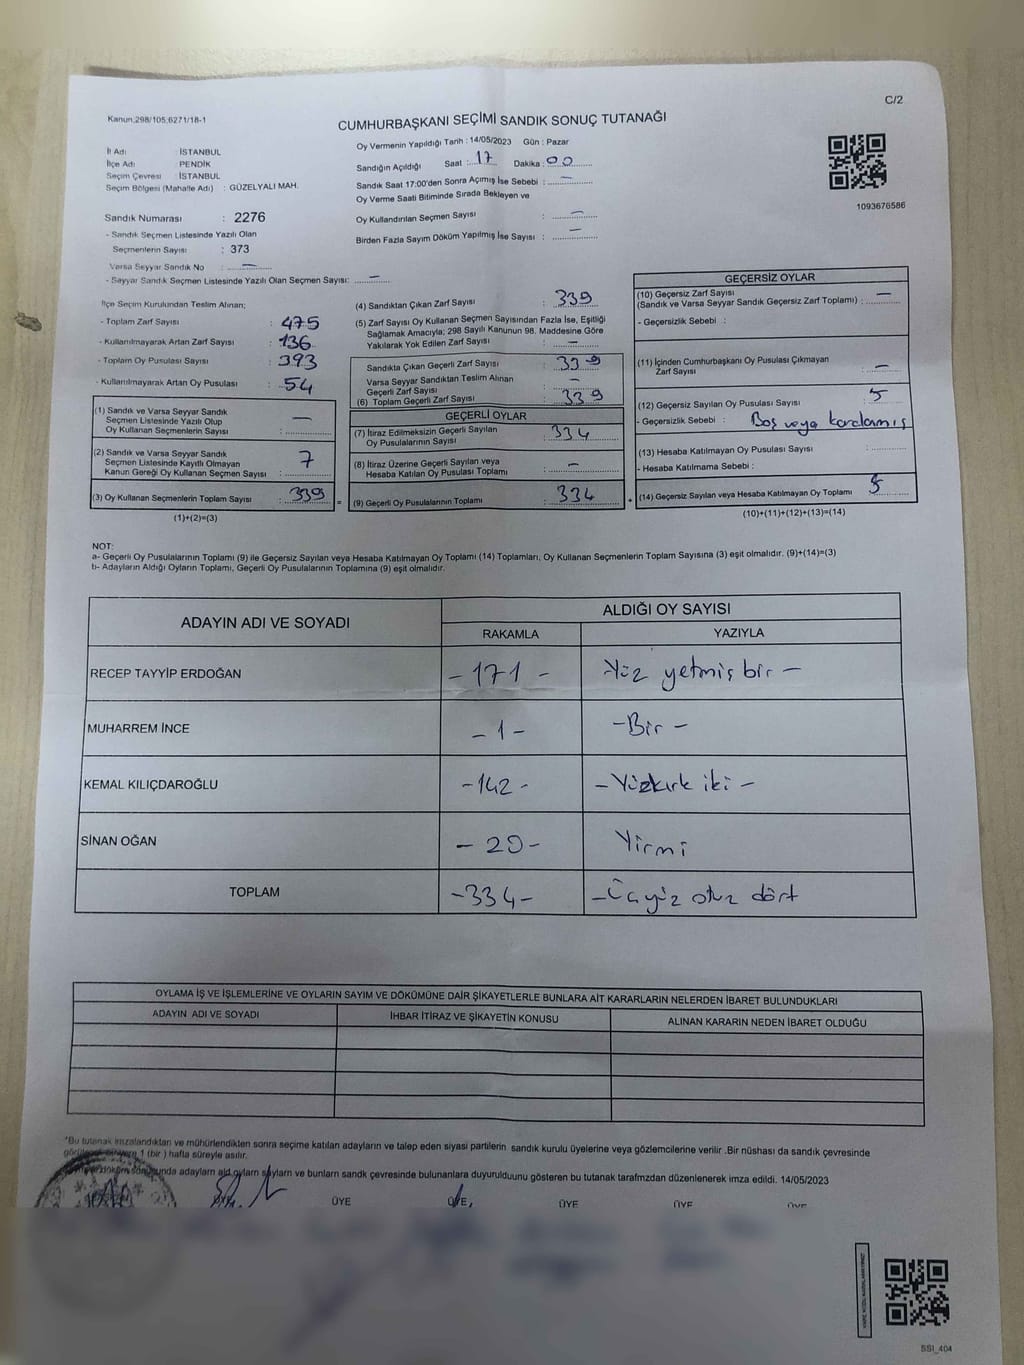 C/2
Kanun.298/105,6271/18-1
CUMHURBAŞKANI SEÇİMİ SANDIK SONUÇ TUTANAĞI
İl Adı : İSTANBUL
İlçe Adı : PENDİK
Seçim Çevresi : İSTANBUL
Seçim Bölgesi (Mahalle Adı) : GÜZELYALI MAH.
Sandık Numarası : 2276
- Sandık Seçmen Listesinde Yazılı Olan
Seçmenlerin Sayısı : 373
Varsa Seyyar Sandık No : —
- Seyyar Sandık Seçmen Listesinde Yazılı Olan Seçmen Sayısı: —
Oy Vermenin Yapıldığı Tarih : 14/05/2023 Gün : Pazar
Sandığın Açıldığı Saat : 17 Dakika : 00
Sandık Saat 17:00'den Sonra Açımış İse Sebebi : —
Oy Verme Saati Bitiminde Sırada Bekleyen ve
Oy Kullandırılan Seçmen Sayısı : —
Birden Fazla Sayım Döküm Yapılmış İse Sayısı : —
1093676586
İlçe Seçim Kurulundan Teslim Alınan;
- Toplam Zarf Sayısı : 475
- Kullanılmayarak Artan Zarf Sayısı : 136
- Toplam Oy Pusulası Sayısı : 393
- Kullanılmayarak Artan Oy Pusulası : 54
(1) Sandık ve Varsa Seyyar Sandık
Seçmen Listesinde Yazılı Olup
Oy Kullanan Seçmenlerin Sayısı : —
(2) Sandık ve Varsa Seyyar Sandık
Seçmen Listesinde Kayıtlı Olmayan
Kanun Gereği Oy Kullanan Seçmen Sayısı : 7
(3) Oy Kullanan Seçmenlerin Toplam Sayısı : 339 =
(1)+(2)=(3)
(4) Sandıktan Çıkan Zarf Sayısı : 339
(5) Zarf Sayısı Oy Kullanan Seçmen Sayısından Fazla İse, Eşitliği
Sağlamak Amacıyla; 298 Sayılı Kanunun 98. Maddesine Göre
Yakılarak Yok Edilen Zarf Sayısı : —
Sandıkta Çıkan Geçerli Zarf Sayısı : 339
Varsa Seyyar Sandıktan Teslim Alınan
Geçerli Zarf Sayısı : —
(6) Toplam Geçerli Zarf Sayısı : 339
GEÇERLİ OYLAR
(7) İtiraz Edilmeksizin Geçerli Sayılan
Oy Pusulalarının Sayısı : 334
(8) İtiraz Üzerine Geçerli Sayılan veya
Hesaba Katılan Oy Pusulası Toplamı : —
(9) Geçerli Oy Pusulalarının Toplamı : 334 +
GEÇERSİZ OYLAR
(10) Geçersiz Zarf Sayısı
(Sandık ve Varsa Seyyar Sandık Geçersiz Zarf Toplamı) : —
- Geçersizlik Sebebi :
(11) İçinden Cumhurbaşkanı Oy Pusulası Çıkmayan
Zarf Sayısı : —
(12) Geçersiz Sayılan Oy Pusulası Sayısı : 5
- Geçersizlik Sebebi : Boş veya karalamış
(13) Hesaba Katılmayan Oy Pusulası Sayısı :
- Hesaba Katılmama Sebebi :
(14) Geçersiz Sayılan veya Hesaba Katılmayan Oy Toplamı : 5
(10)+(11)+(12)+(13)=(14)
NOT:
a- Geçerli Oy Pusulalarının Toplamı (9) ile Geçersiz Sayılan veya Hesaba Katılmayan Oy Toplamı (14) Toplamları, Oy Kullanan Seçmenlerin Toplam Sayısına (3) eşit olmalıdır. (9)+(14)=(3)
b- Adayların Aldığı Oyların Toplamı, Geçerli Oy Pusulalarının Toplamına (9) eşit olmalıdır.
ADAYIN ADI VE SOYADI ALDIĞI OY SAYISI
RAKAMLA YAZIYLA
RECEP TAYYİP ERDOĞAN -171- Yüz yetmiş bir —
MUHARREM İNCE -1- -Bir-
KEMAL KILIÇDAROĞLU -142- -Yüzkırk iki-
SİNAN OĞAN -20- Yirmi
TOPLAM -334- -Üçyüz otuz dört
OYLAMA İŞ VE İŞLEMLERİNE VE OYLARIN SAYIM VE DÖKÜMÜNE DAİR ŞİKAYETLERLE BUNLARA AİT KARARLARIN NELERDEN İBARET BULUNDUKLARI
ADAYIN ADI VE SOYADI İHBAR İTİRAZ VE ŞİKAYETİN KONUSU ALINAN KARARIN NEDEN İBARET OLDUĞU
*Bu tutanak imzalandıktan ve mühürlendikten sonra seçime katılan adayların ve talep eden siyasi partilerin sandık kurulu üyelerine veya gözlemcilerine verilir .Bir nüshası da sandık çevresinde
1 (bir ) hafta süreyle asılır.
döküm sonucunda adayların aldığı oyların sayların ve bunların sandık çevresinde bulunanlara duyurulduunu gösteren bu tutanak tarafımzdan düzenlenerek imza edildi. 14/05/2023
ÜYE ÜYE ÜYE ÜYE ÜYE
SSI_404